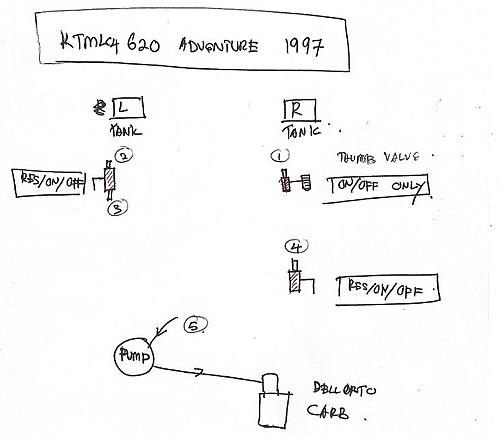 KTMLC4 620 ADVENTURE 1997
L
TANK
R
TANK.
2
RES/ON/OFF
3
1
THUMB VALVE
ON/OFF ONLY
4
RES/ON/OFF
5
PUMP
DELLORTO
CARB.